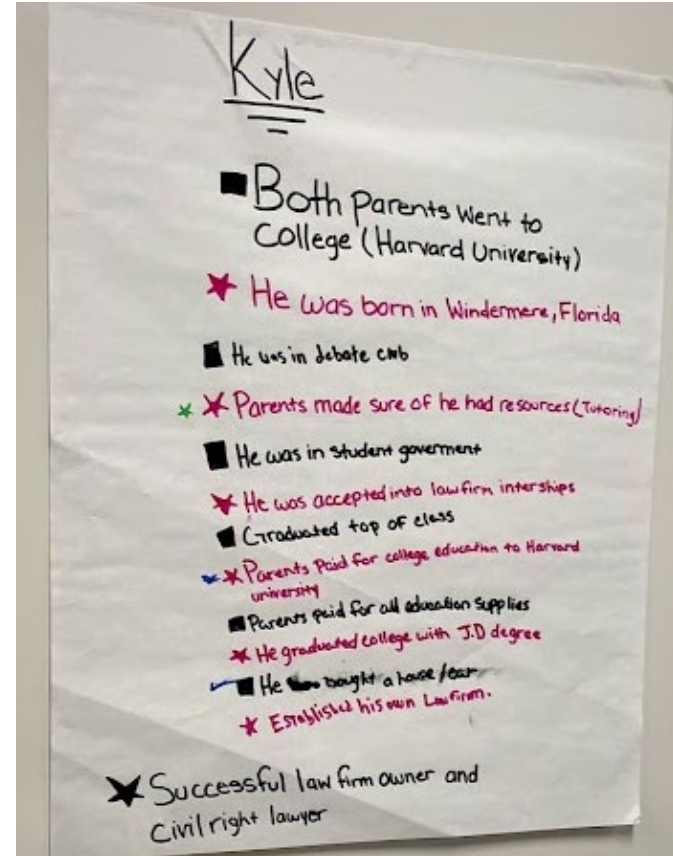 Kyle
Both Parents Went to
College (Harvard University)
He was born in Windermere, Florida
He was in debate club
Parents made sure of he had resources (Tutoring)
He was in student goverment
He was accepted into law firm interships
Graduated top of class
Parents Paid for college education to Harvard
university
Parents paid for all education supplies
He graduated college with J.D degree
He bought a house/car
Established his own Law firm.
Successful law firm owner and
Civil right lawyer